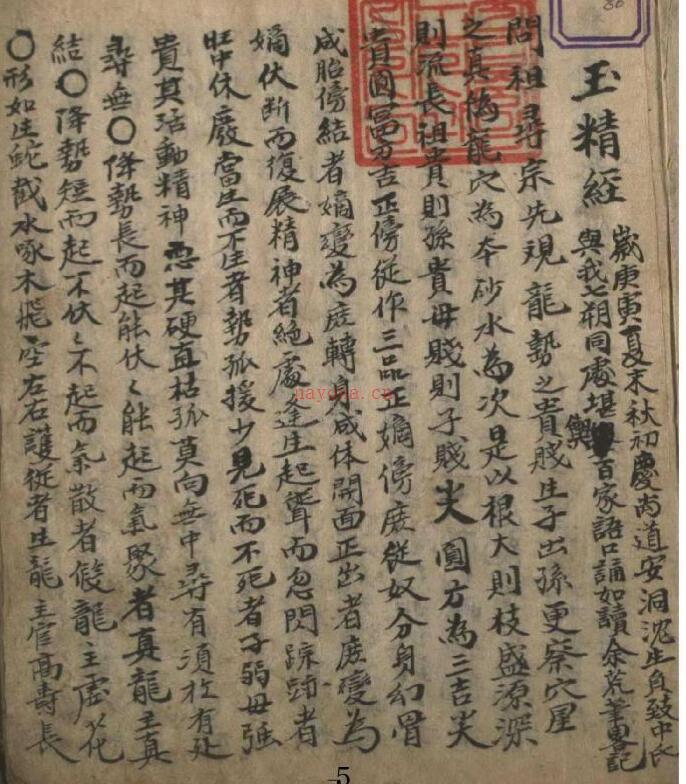 玉精經
歲庚寅夏末秋初慶尚道安洞沈生員致中氏
與我七朔同處堪輿百家語口誦如讀余荒筆畧記
問祖尋宗先現龍勢之貴賤生子出孫更察穴星
之真偽龍穴為本砂水為次是以根大則枝盛源深
則流長祖貴則孫貴母賤則子賤尖圓方為三吉尖
貴圓富方吉正傍從作三品正嫡傍庶從奴分身幻骨
成胎傍結者嫡變為庶轉身成体開面正出者庶變為
嫡伏断而復展精神者絕處逢生起聳而忽閃踪跡者
旺中休廢當生而不生者勢孤援少見死而不死者子弱母强
貴其活動精神忌其硬直枯孤莫向無中尋有須於有處
尋無〇降勢長而起能伏〻能起而氣聚者真龍主真
結〇降勢短而起不伏〻不起而氣散者假龍主虛花
〇形如生蛇戲水啄木飛空左右護從者生龍主官高壽長
naydna.cn
5